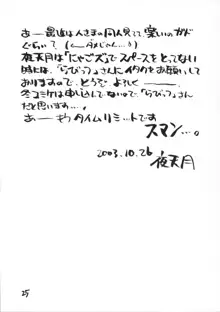 あー最近は人さまの同人見て笑いのガド
ぐらいで(ーダメじゃん…)
夜天月は「にゃごズ」でスペースをとってない
時には、「らびっつ」さんにイタクをお願いして
おりますので、どうぞ、よろしくーー。
冬コミケは申し込んでないので、「らびっつ」さん
だと思いますー。
あーもうタイムリミットです
スマン…。
2003.10.26
夜天月
25